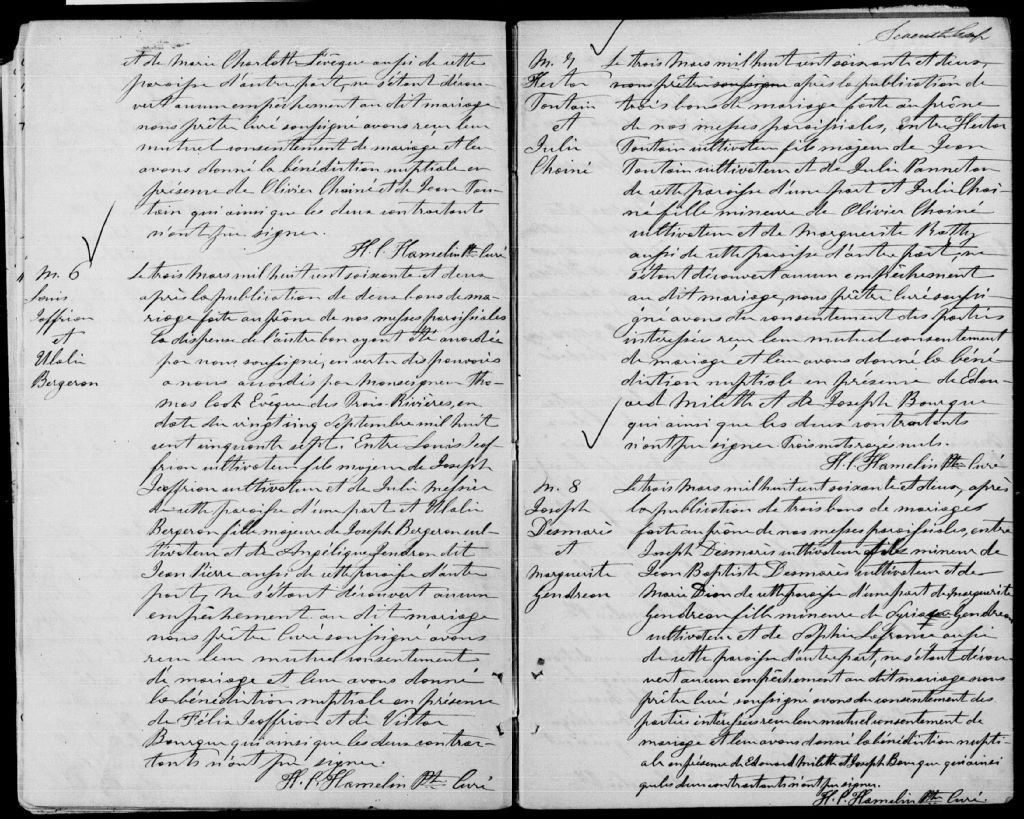 et de Marie Charlotte Lévêque aussi de cette
paroisse d'autre part, ne s'étant décou-
vert aucun empêchement au dit mariage
nous prêtre curé soussigné avons reçu leur
mutuel consentement de mariage et leur
avons donné la bénédiction nuptiale en
présence de Olivier Chainé et de Jean Fou-
tain qui ainsi que les deux contractants
n'ont pu signer.
H. P. Hamelin Ptre Curé
M. 6
Louis
Joffrion
et
Ulalie
Bergeron
Le trois Mars mil huit cent soixante et deux
après la publication de deux bans de ma-
riage faite au prône de nos messes paroissiales
la dispense de l'autre ban ayant été accordée
par nous soussigné, en vertu des pouvoirs
a nous accordés par Monseigneur Tho-
mas Cook Evêque des Trois-Rivières, en
date du vingt cinq Septembre mil huit
cent cinquante sept. Entre Louis Jeof-
frion cultivateur fils majeur de Joseph
Jeoffrion cultivateur et de Julie Messier
de cette paroisse d'une part et Ulalie
Bergeron fille majeure de Joseph Bergeron cul-
tivateur et de Angélique Gendron dit
Jean Pierre aussi de cette paroisse d'autre
part, ne s'étant découvert aucun
empêchement au dit mariage
nous prêtre Curé soussigné avons
reçu leur mutuel consentement
de mariage et leur avons donné
la bénédiction nuptiale en présence
de Félix Jeoffrion et de Victor
Bourque qui ainsi que les deux contrac-
tants n'ont pu signer.
H. P. Hamelin Ptre Curé
Seventh Leaf
M. 7
Hector
Foutain
et
Julie
Chainé
Le trois Mars mil huit cent soixante et deux,
nous prêtre soussigné après la publication de
trois bans de mariage faite au prône
de nos messes paroissiales, entre Hector
Foutain cultivateur fils majeur de Jean
Foutain cultivateur et de Julie Panneton
de cette paroisse d'une part et Julie Chai-
né fille mineure de Olivier Chainé
cultivateur et de Marguerite
aussi de cette paroisse d'autre part, ne
s'étant découvert aucun empêchement
au dit mariage, nous prêtre Curé soussi-
gné avons du consentement des parties
intéressées reçu leur mutuel consentement
de mariage et leur avons donné la béné-
diction nuptiale en présence de Edou-
ard Milette et de Joseph Bourque
qui ainsi que les deux contractants
n'ont pu signer Trois mots rayés nuls.
H. P. Hamelin Ptre Curé
M. 8
Joseph
Desmarès
et
Marguerite
Gendreau
Le trois Mars mil huit cent soixante et deux, après
la publication de trois bans de mariages
faite au prône de nos messes paroissiales, entre
Joseph Desmarès cultivateur fils mineur de
Jean Baptiste Desmarès cultivateur et de
Marie Dion de cette paroisse d'une part et Marguerite
Gendreau fille mineure de Gendreau
cultivateur et de Sophie Lafrance aussi
de cette paroisse d'autre part, ne s'étant décou-
vert aucun empêchement au dit mariage nous
prêtre curé soussigné avons du consentement des
parties intéressées reçu leur mutuel consentement de
mariage et leur avons donné la bénédiction nupti-
ale en présence de Edouard Milette et Joseph Bourque qui ainsi
que les deux contractants n'ont pu signer.
H. P. Hamelin Ptre Curé.